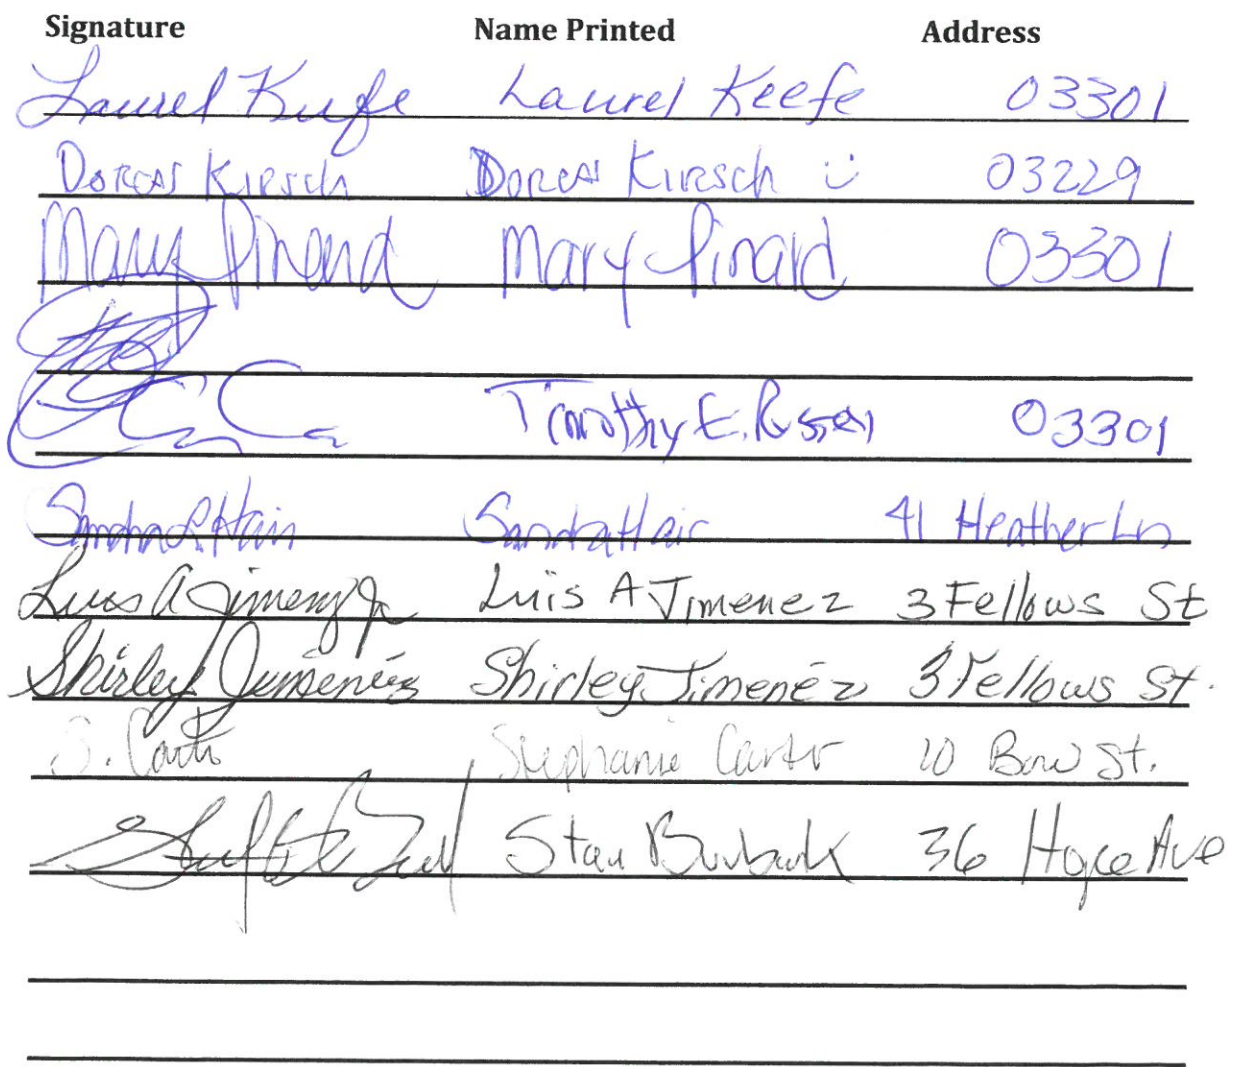 Signature Name Printed Address
Laurel Keefe Laurel Keefe 03301
Dorcas Kirsch Dorcas Kirsch :) 03229
Mary Pinard Mary Pinard 03301
Timothy E. 03301
Sandra L Hair Sandra Hair 41 Heather Ln
Luis A Jimenez Jr Luis A Jimenez 3 Fellows St
Shirley Jimenez Shirley Jimenez 3 Fellows St.
S. Carter Stephanie Carter 10 Bow St.
Stan Burbank 36 Ave